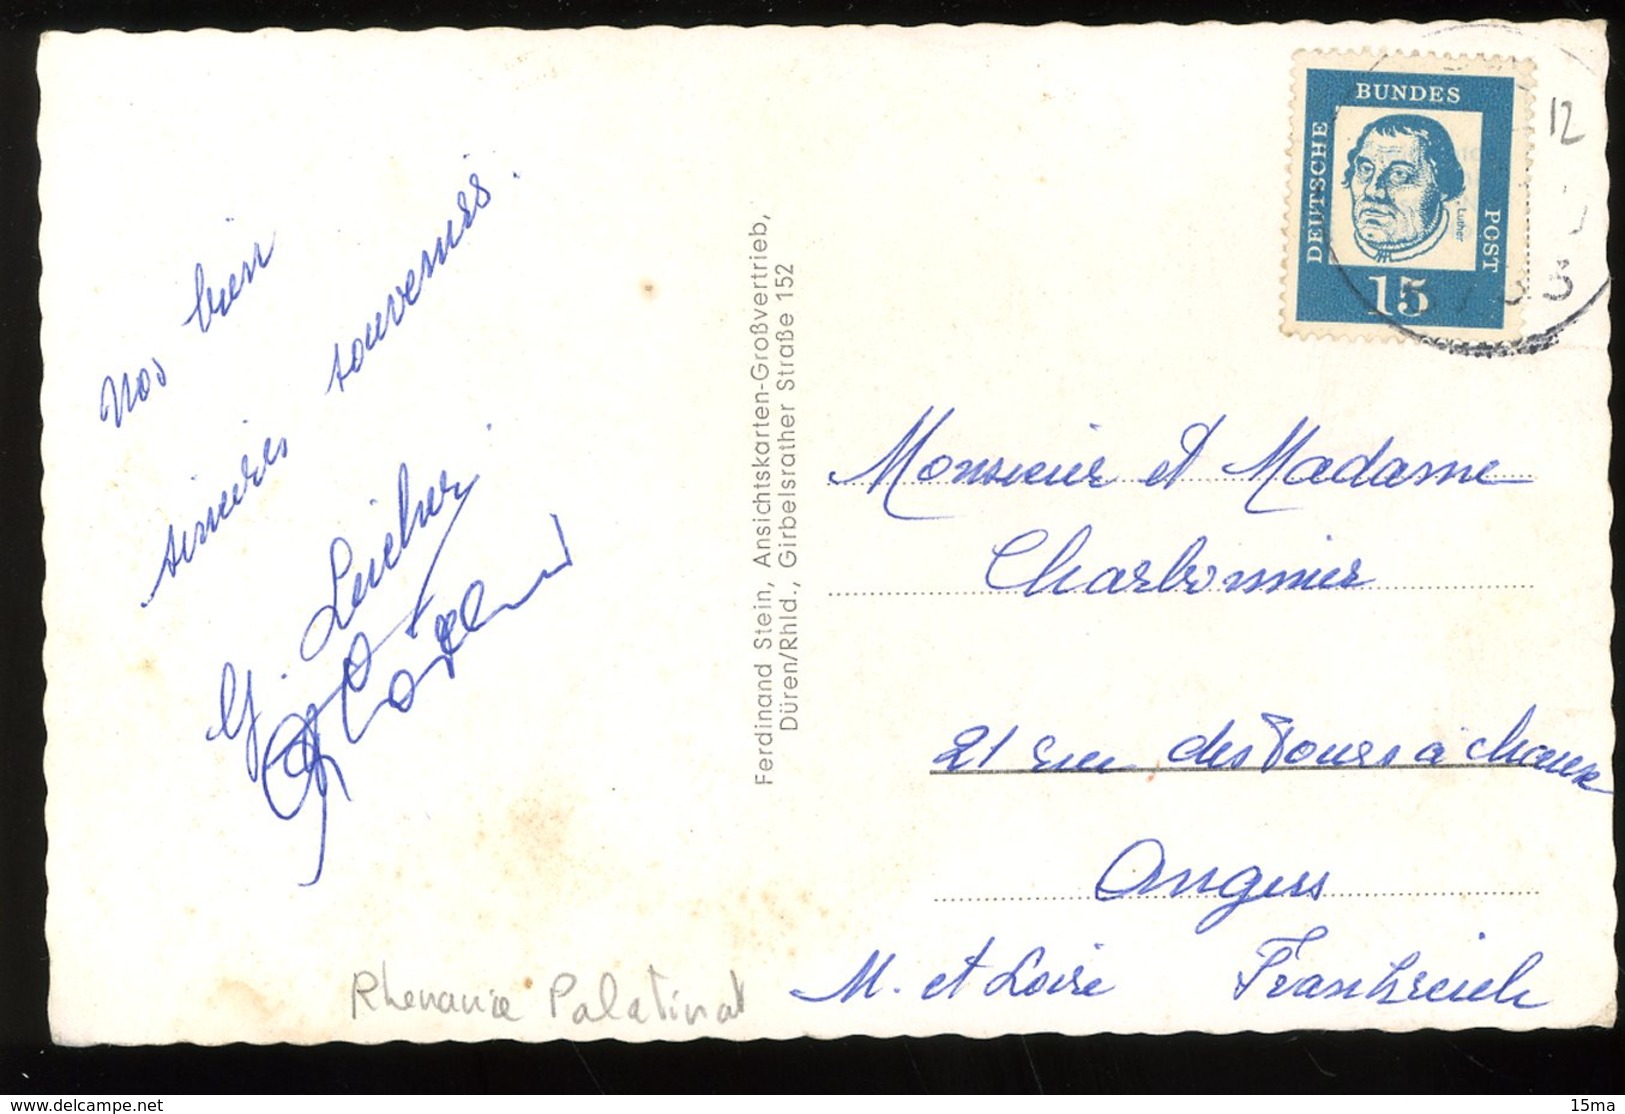 Nos bien
sincères souvenirs.
G.
Ferdinand Stein, Ansichtskarten-Großvertrieb,
Düren/Rhld., Girbelsrather Straße 152
DEUTSCHE
BUNDES
POST
Luther
15
12
Monsieur et Madame
Charbonnier
21 rue des Fours à chaux
Angers
M. et Loire Frankreich
Rhenanie Palatinat
www.delcampe.net
15ma